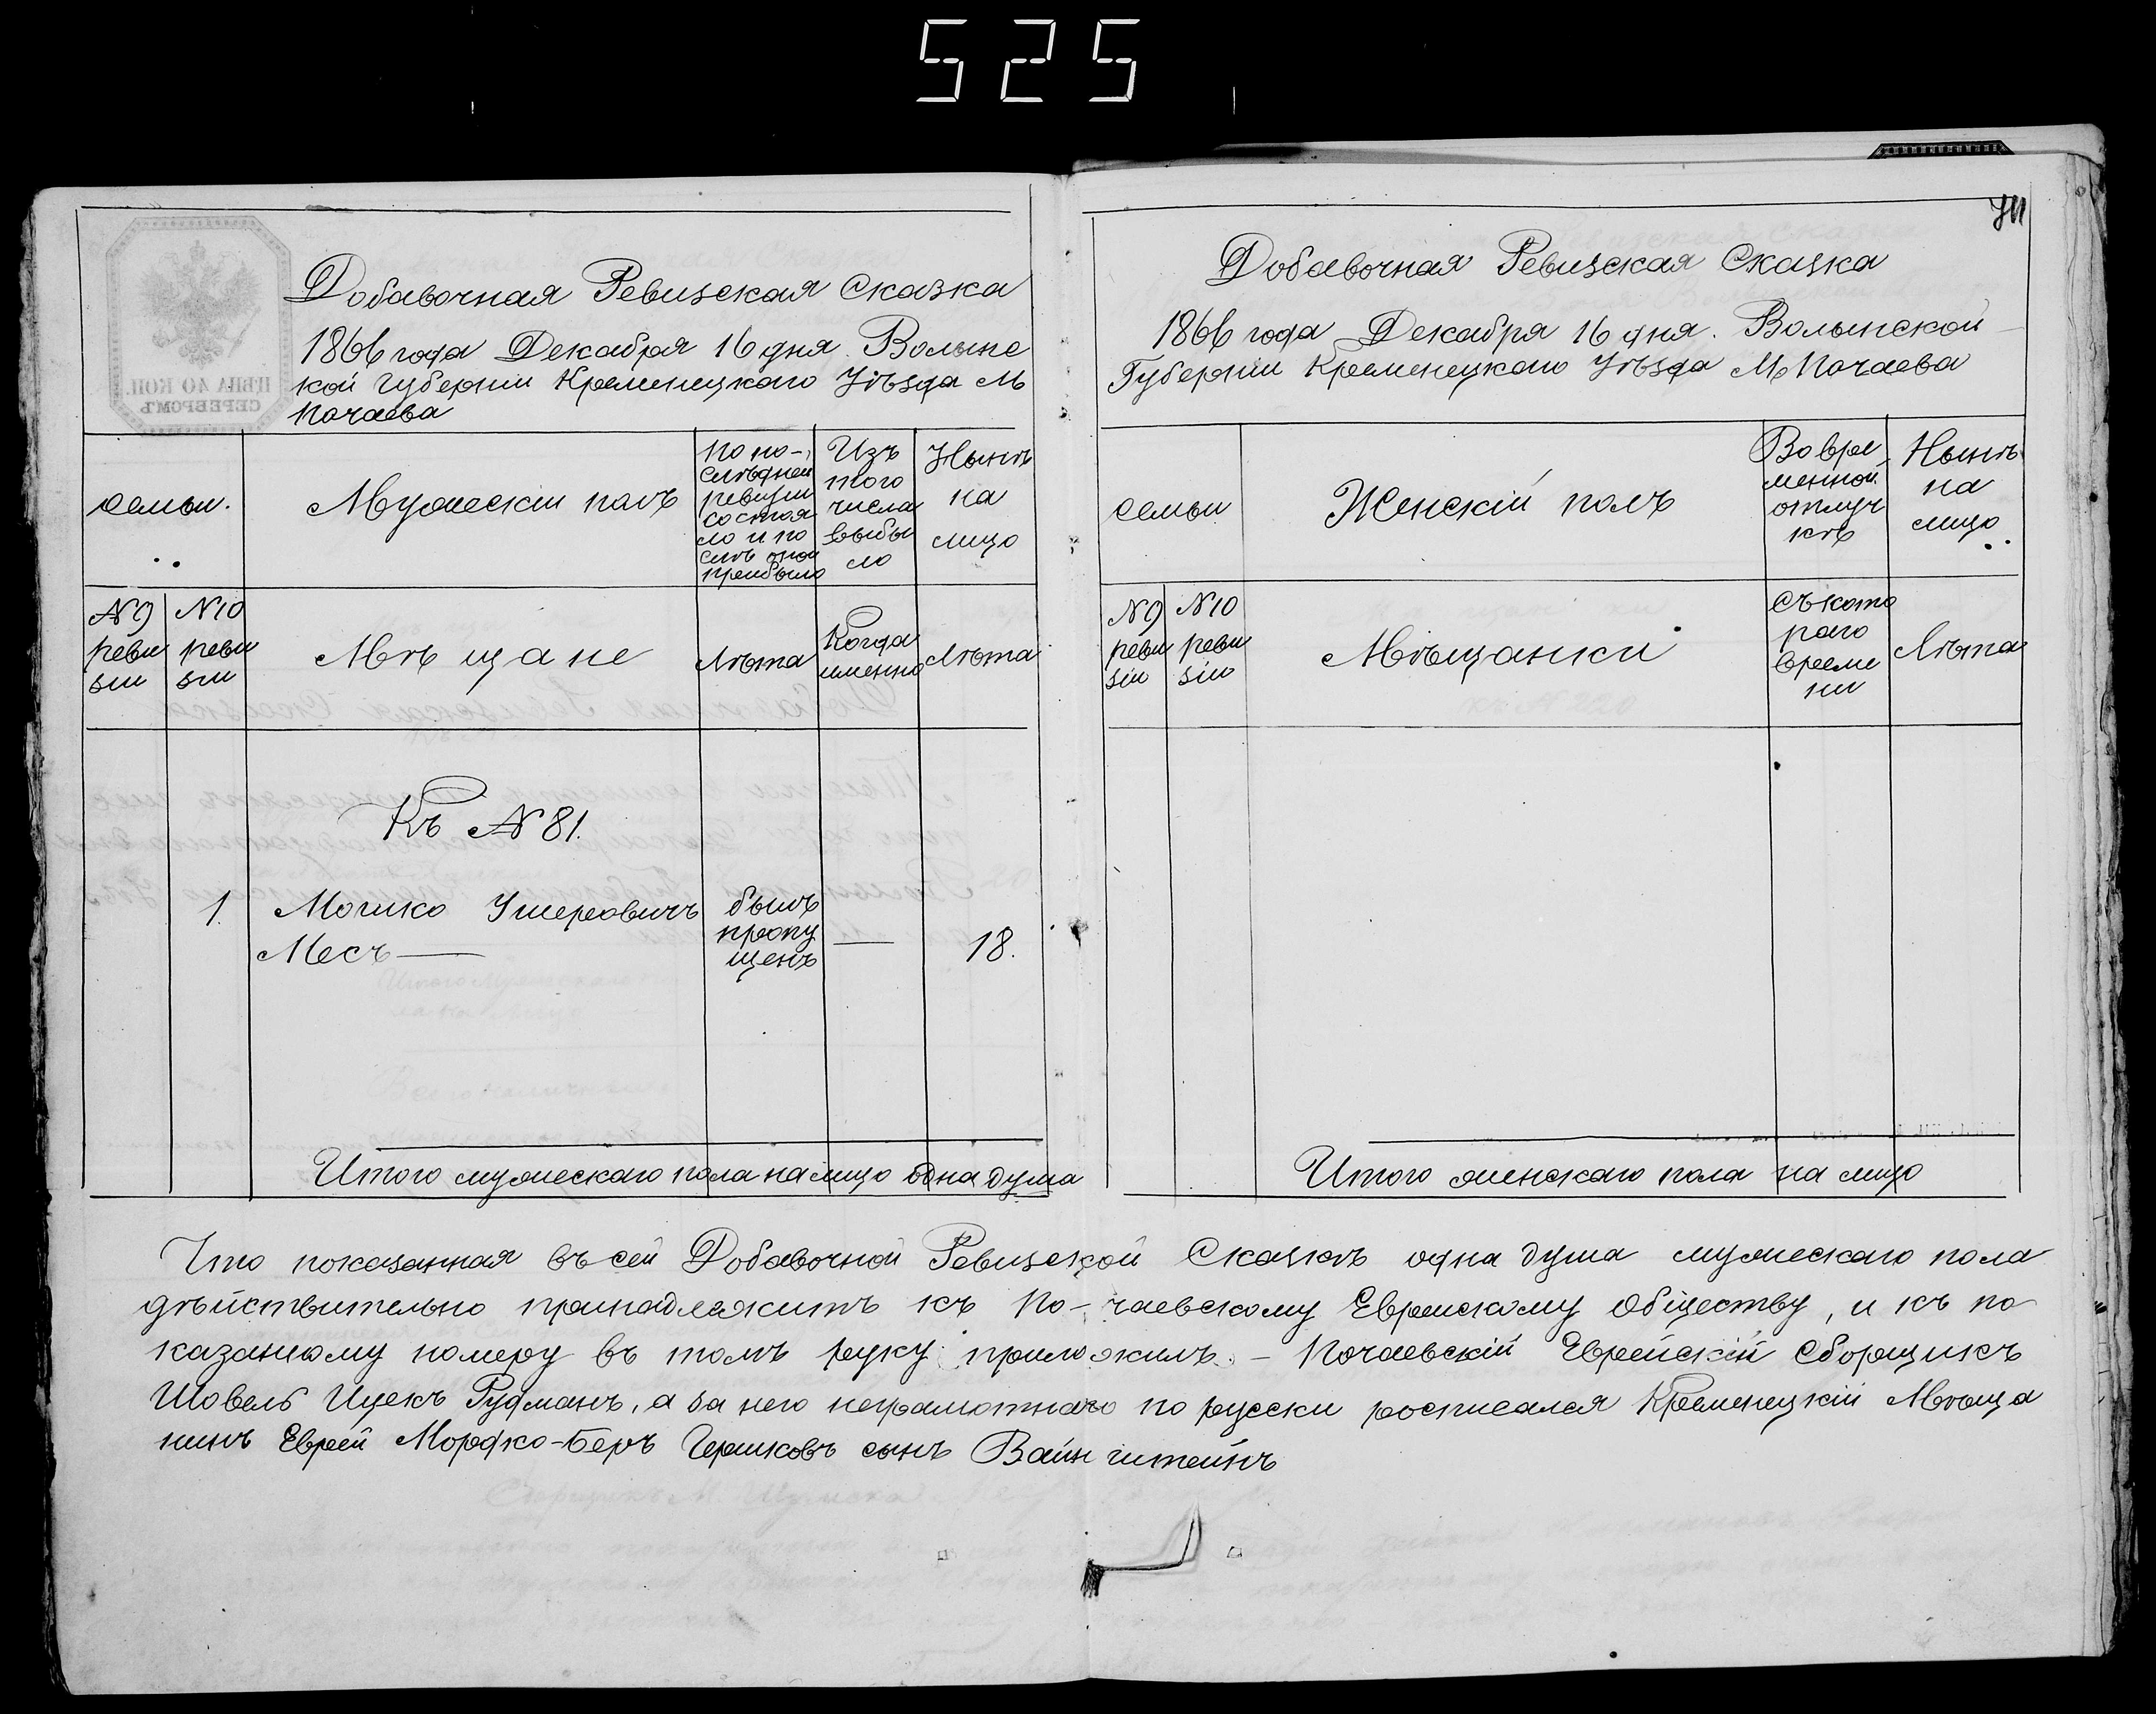 525
Добавочная Ревизская Сказка
1866 года Декабря 16 дня. Волынс
кой Губерніи Кременецкаго Уѣзда М.
Почаева
ЦѢНА 40 КОП.
СЕРЕБРОМЪ
семьи.
Мужескій полъ
По по-
слѣдней
ревизіи
состоя
ло и по
слѣ оной
прибыло
Изъ
того
числа
выбы
ло
Нынѣ
на
лицо
N 9
реви
зіи
N 10
реви
зіи
Мѣщане
Лѣта
Когда
именно
Лѣта
Къ N 81.
1. Мошко Ушеровичъ
Месъ —
былъ
пропу
щенъ
—
18.
Итого мужескаго пола на лицо одна душа
Добавочная Ревизская Сказка
1866 года Декабря 16 дня. Волынской
Губерніи Кременецкаго Уѣзда М. Почаева
семьи
Женскій полъ
Во вре
менной
отлуч
кѣ
Нынѣ
на
лицо
N 9
реви
зіи
N 10
реви
зіи
Мѣщанки
Съ кото
раго
време
ни
Лѣта
Итого женскаго пола на лицо
Что показанная въ сей Добавочной Ревизской Сказкѣ одна душа мужескаго пола
дѣйствительно принадлежитъ къ По-чаевскому Еврейскому Обществу, и къ по
казанному номеру въ томъ руку приложилъ. – Почаевскій Еврейскій Сборщикъ
Шовель Ицекъ Гудманъ, а за него неграмотнаго по русски росписался Кременецкій Мѣща
нинъ Еврей Мордко-Беръ Гершковъ сынъ Вайнштейнъ